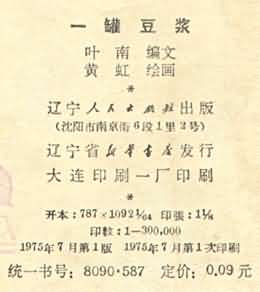 一罐豆浆
叶南 编文
黄虹 绘画
*
辽宁人民出版社出版
(沈阳市南京街6段1里2号)
辽宁省新华书店发行
大连印刷一厂印刷
*
开本:787×1092 1/64 印张:1 1/8
印数:1—300,000
1975年7月第1版 1975年7月第1次印刷
统一书号:8090·587 定价:0.09元